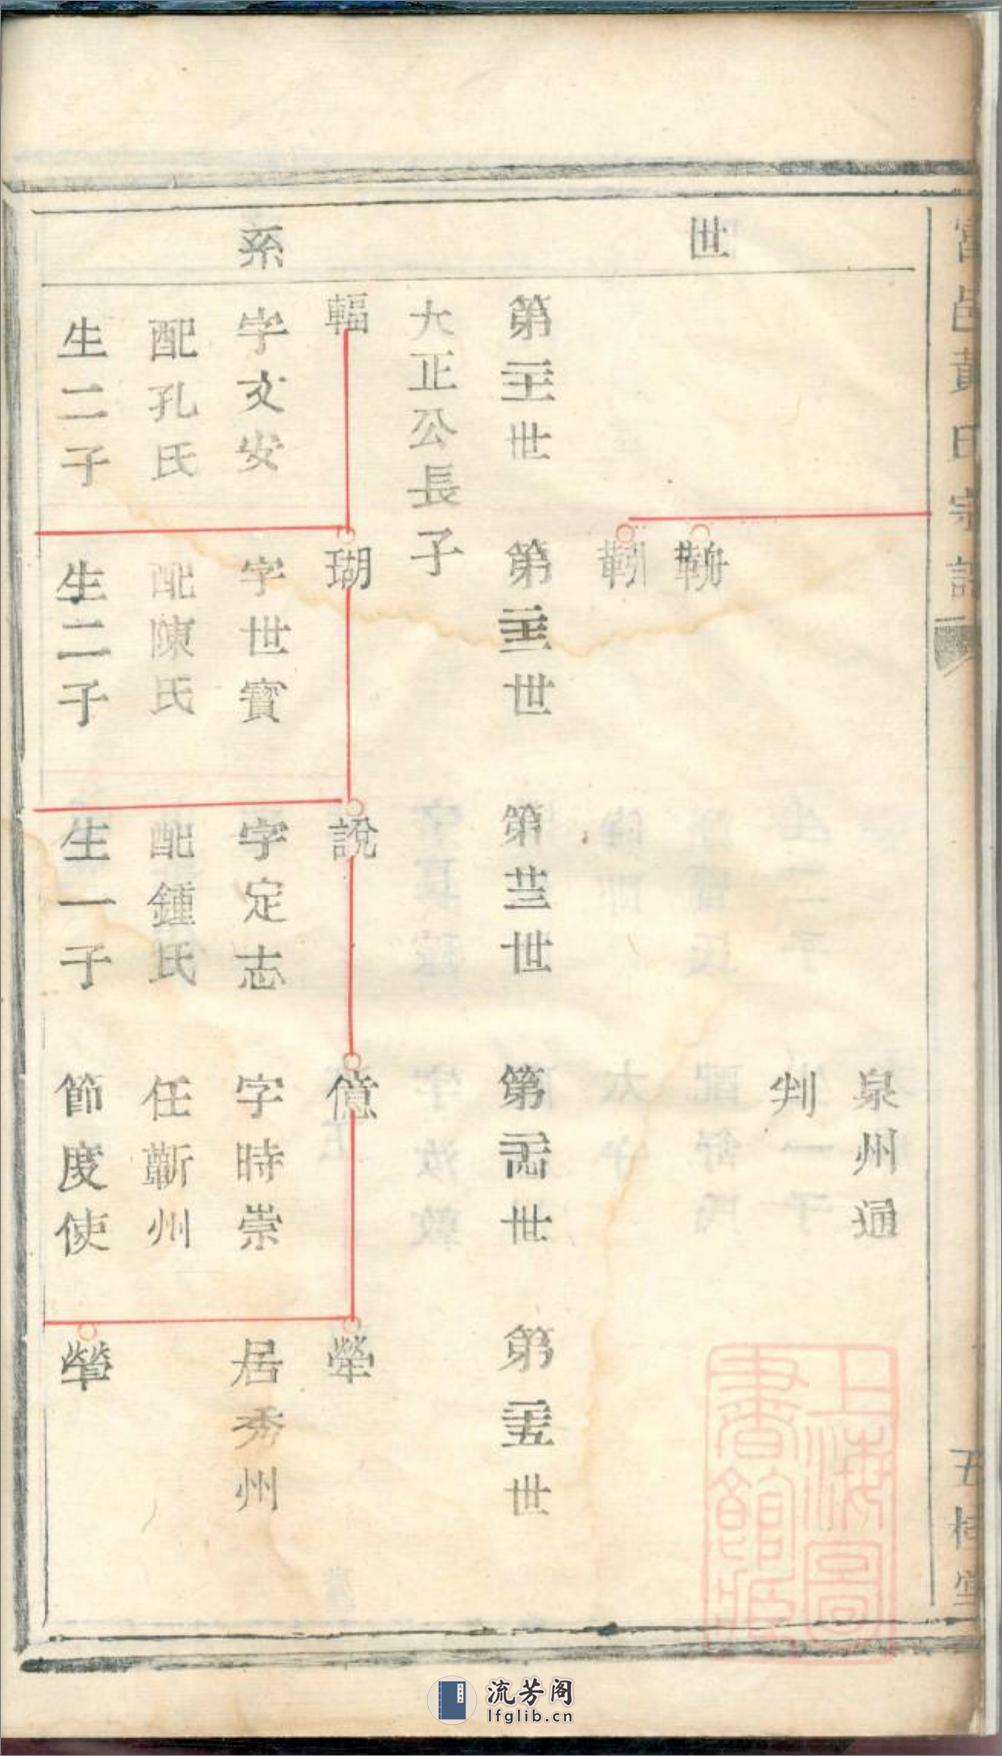 黃氏宗譜
五桂堂
世
系
泉州通
判
第二十一世
第二十二世
第二十三世
第二十四世
第二十五世
大正公長子
輻
瑚
說
億
犖
字文安
字世寶
字定志
字時崇
居秀州
配孔氏
配陳氏
配鍾氏
任蘄州
生二子
生二子
生一子
節度使
上海圖
書館藏
流芳阁
lfglib.cn